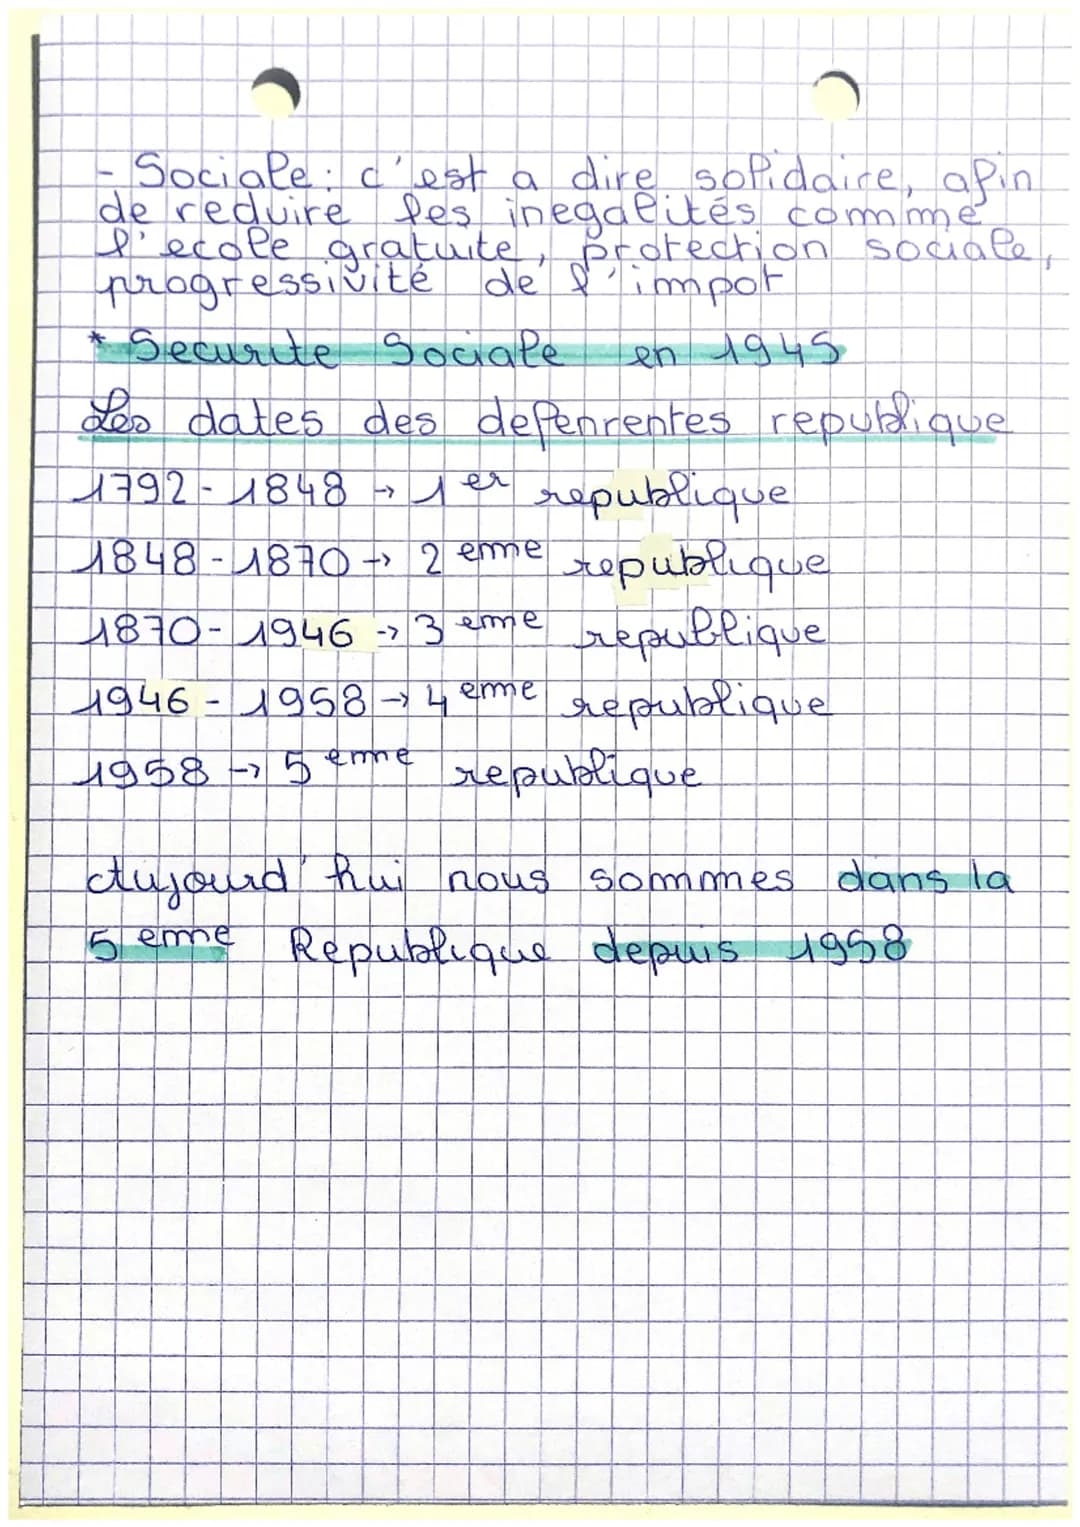 - Sociale : c'est a dire solidaire, afin
de reduire les inegalités comme
l'ecole gratuite, protection sociale,
progressivité de l'impot
* Securite Sociale en 1945
Les dates des defenrentes republique
1792 - 1848 → 1er republique
1848 - 1870 → 2 eme republique
1870 - 1946 → 3 eme republique
1946 - 1958 → 4 eme republique
1958 → 5 eme republique
Aujourd'hui nous sommes dans la
5 eme Republique depuis 1958